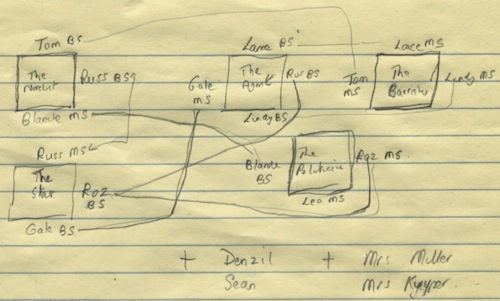 Tom BS
Lance BS
Lance MS
The
Novelist
Russ BS
Gale
MS
The
Agent
Ros BS
Tom
MS
The
Barrister
Lindy MS
Blanche MS
Lindy BS
Russ MS
Blanche
BS
The
Politician
Roz MS
The
Star
Roz
BS
Leo MS
Gale BS
+ Denzil + Mrs Muller
Sean Mrs